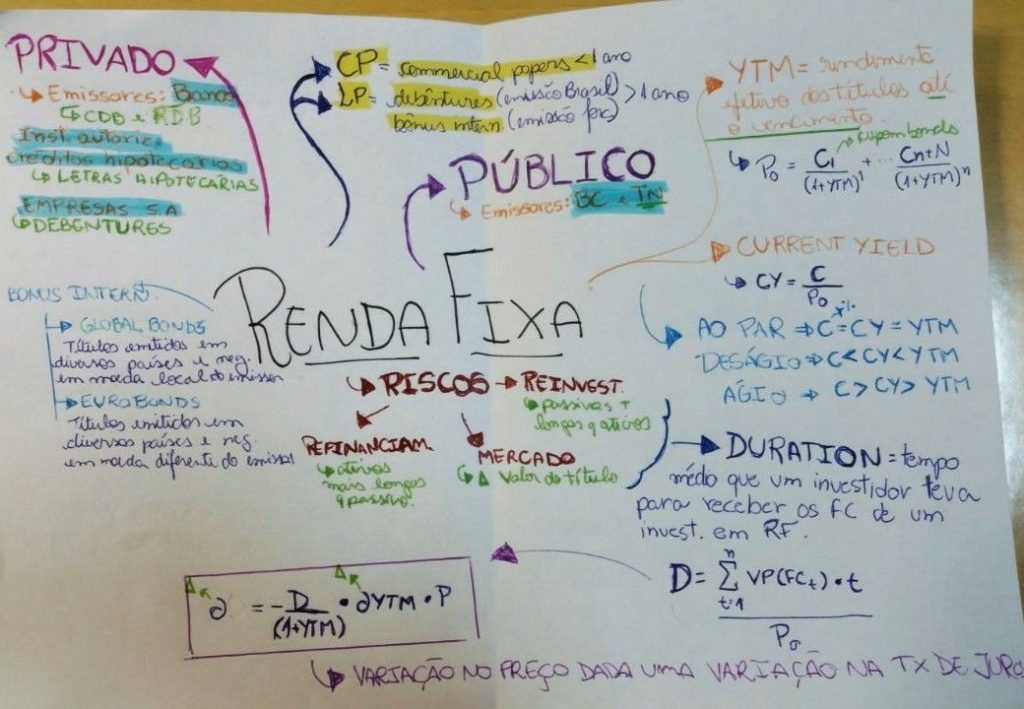 PRIVADO
Emissores: Bancos
CDB e RDB
Inst. autoriz.
créditos hipotecários
LETRAS HIPOTECÁRIAS
EMPRESAS S.A
DEBENTURES
CP = commercial papers < 1 ano
LP = debêntures (emissão Brasil) > 1 ano
bônus intern.
PÚBLICO
Emissores: BC e TN
YTM = rendimento
efetivo dos títulos até
o vencimento.
P0 = C1/(1+YTM)^1 + ... Cn+N/(1+YTM)^n
CURRENT YIELD
CY = C/P0
AO PAR ⇒ C = CY = YTM
DESÁGIO ⇒ C < CY < YTM
ÁGIO ⇒ C > CY > YTM
RENDA FIXA
BONUS INTERN.
GLOBAL BONDS
Títulos emitidos em
diversos países e neg.
em moeda local do emissor
EUROBONDS
Títulos emitidos em
diversos países e neg.
em moeda diferente do emissor
RISCOS → REINVEST.
passivos +
longos q ativos
REFINANCIAM.
ativos
mais longos
q passivo.
MERCADO
Δ Valor do título
DURATION = tempo
médio que um investidor leva
para receber os FC de um
invest. em RF.
D = Σ(t=1 → n) VP(FCt) • t / P0
∂ = -D/(1+YTM) • ∂YTM • P
Δ
Δ
VARIAÇÃO NO PREÇO DADA UMA VARIAÇÃO NA TX DE JURO